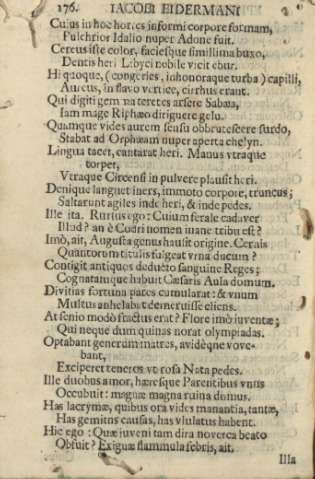 176. IACOBI BIDERMANI
Cuius in hoc horres informi corpore formam,
Pulchrior Idalio nuper Adone fuit.
Cereus iste color, faciesque simillima buxo,
Dentis heri Libyci nobile vicit ebur.
Hi quoque, (congeries, inhonoraque turba) capilli,
Aureus, in flavo vertice, cirrhus erant.
Qui digiti gemma teretes arsere Sabæa,
Iam mage Riphæo diriguere gelu.
Quamque vides aurem sensu obbrutescere surdo,
Stabat ad Orphæam nuper aperta chelyn.
Lingua tacet, cantarat heri. Manus vtraque
torper,
Vtraque Circensi in pulvere plausit heri.
Denique languet iners, immoto corpore, truncus;
Saltarunt agiles inde heri, & inde pedes.
Ille ita. Rursus ego: Cuium ferale cadaver
Illud? an è Codri nomen inane tribu est?
Imò, ait, Augusta genus hausit origine. Cernis
Quantorum titulis fulgeat vrna ducum?
Contigit antiquos deducto sanguine Reges;
Cognatamque habuit Cæsaris Aula domum.
Divitias fortuna pares cumularat: & vnum
Multus anhelabat demeruisse cliens.
At senio modò fractus erat? Flore imò iuventæ;
Qui neque dum quinas norat olympiadas.
Optabant generum matres, avidéqne vove-
bant,
Exciperet teneros vt rosa Nata pedes.
Ille duobus amor, hæresque Parentibus vnus
Occubuit: magnæ magna ruina domus.
Has lacrymæ, quibus ora vides manantia, tantæ,
Has gemitus causas, has vlulatus habent.
Hic ego: Quæ juveni tam dira noverca beato
Obfuit? Exiguæ flammula febris, ait.
Illa